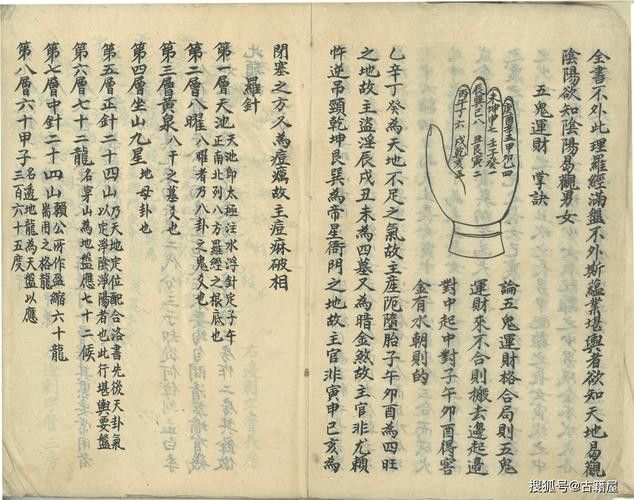 全書不外此理羅經滿盤不外斯蘊業堪輿者欲知天地易觀
陰陽欲知陰陽易觀男女
五鬼運財 掌訣
論五鬼運財格合局則五鬼
運財來不合則搬去邊起邊
對中起中對子午卯酉得客
金有水朝則的
乙辛丁癸為天地不足之氣故主產阨隨胎子午卯酉為四旺
之地故主盜淫辰戌丑未為四墓又為暗金煞故主官非尤賴
忤逆吊頸乾坤艮巽為帝星衙門之地故主官非寅申巳亥為
閉塞之方又為痘瘼故主痘痳破相
羅針
第一層天池 天池即太極注水浮針定子午
正南北列八方羅經之根底也
第二層八曜 八曜者乃八卦之鬼爻也
第三層黃泉 八干之墓爻也
第四層坐山九星 地母卦也
第五層正針二十四山 乃天地定位配合洛書先後天卦氣
以定淨陰淨陽者也此行堪輿要盤
第六層七十二龍 名穿山為地盤應七十二候
第七層中針二十四山 賴公所作盈縮六十龍
耑用之格龍
第八層六十甲子 名透地龍為天盤以應
三百六十五度
搜狐号@古籍屋